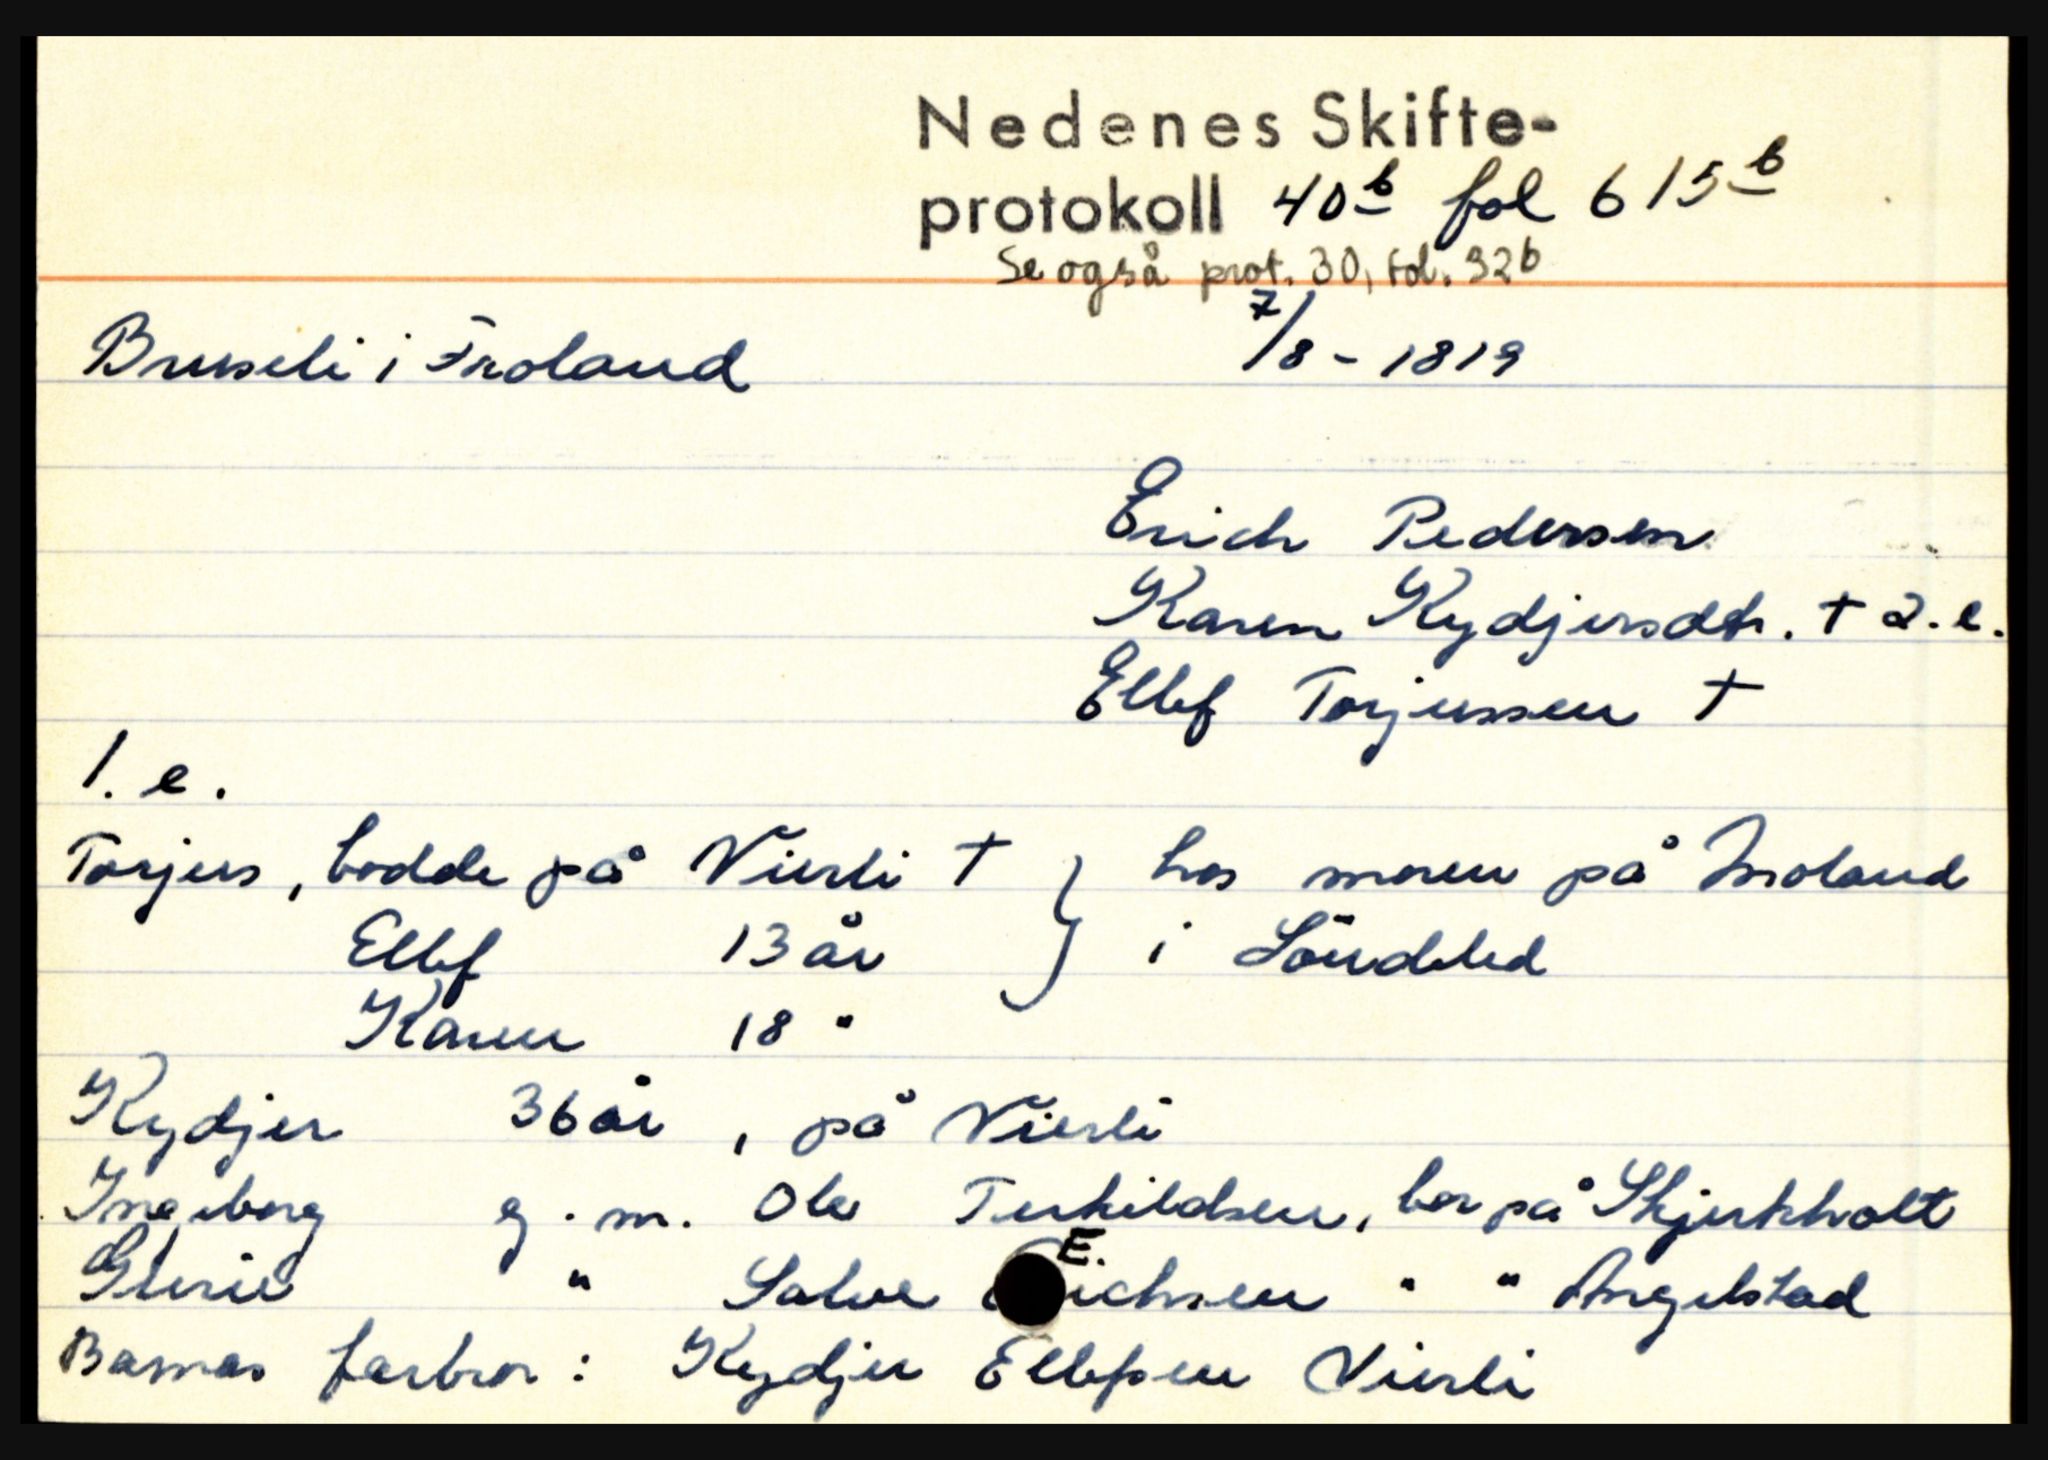 Nedenes Skifte-
protokoll 40 b fol 615 b
Se også prot. 30, fol. 92 b
Bruseli i Froland 7/8 - 1819
Erich Pedersen
Karen Kydjersdtr. † 2. e.
Ellef Torjussen †
1. e.
Torjus, bodde på Vierli † } hos moren på Moland
Ellef 13 år } i Söndeled
Karen 18 "
Kydjer 36 år, på Vierli
Ingeborg g. m. Ole Terkildsen, bor på Skjerkholt
Gurie " Salve E. ichsen " " Angelstad
Barnas farbror: Kydjer Ellefsen Vierli